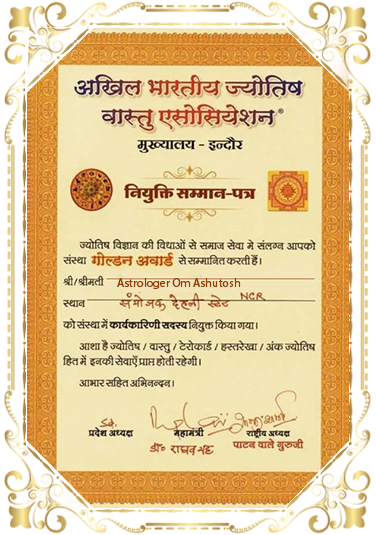 अखिल भारतीय ज्योतिष
वास्तु एसोसियेशन®
मुख्यालय - इन्दौर
नियुक्ति सम्मान-पत्र
ज्योतिष विज्ञान की विधाओं से समाज सेवा मे संलग्न आपको
संस्था गोल्डन अवार्ड से सम्मानित करती हैं।
श्री/श्रीमती Astrologer Om Ashutosh
स्थान संयोजक देहली स्टेट NCR
को संस्था में कार्यकारिणी सदस्य नियुक्त किया गया।
आशा है ज्योतिष / वास्तु / टेरोकार्ड / हस्तरेखा / अंक ज्योतिष
हित में इनकी सेवाएँ प्राप्त होती रहेगी।
आभार सहित अभिनन्दन।
प्रदेश अध्यक्ष महामंत्री राष्ट्रीय अध्यक्ष
पाटन वाले गुरुजी